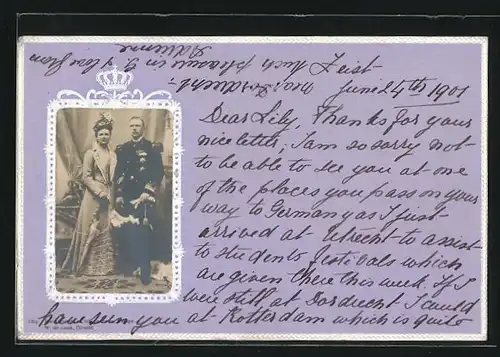 Zeist
June 24th 1901
Dear Lily, Thanks for your
nice letter, I am so sorry not
to be able to see you at one
of the places you pass on your
way to Germany as I just
arrived at Utrecht to assist
to students festivals which
are given there this week. If I
were still at Dordrecht I could
have seen you at Rotterdam which is quite
near Dordrecht.
Much pleasure in G. & love from
Adrienne